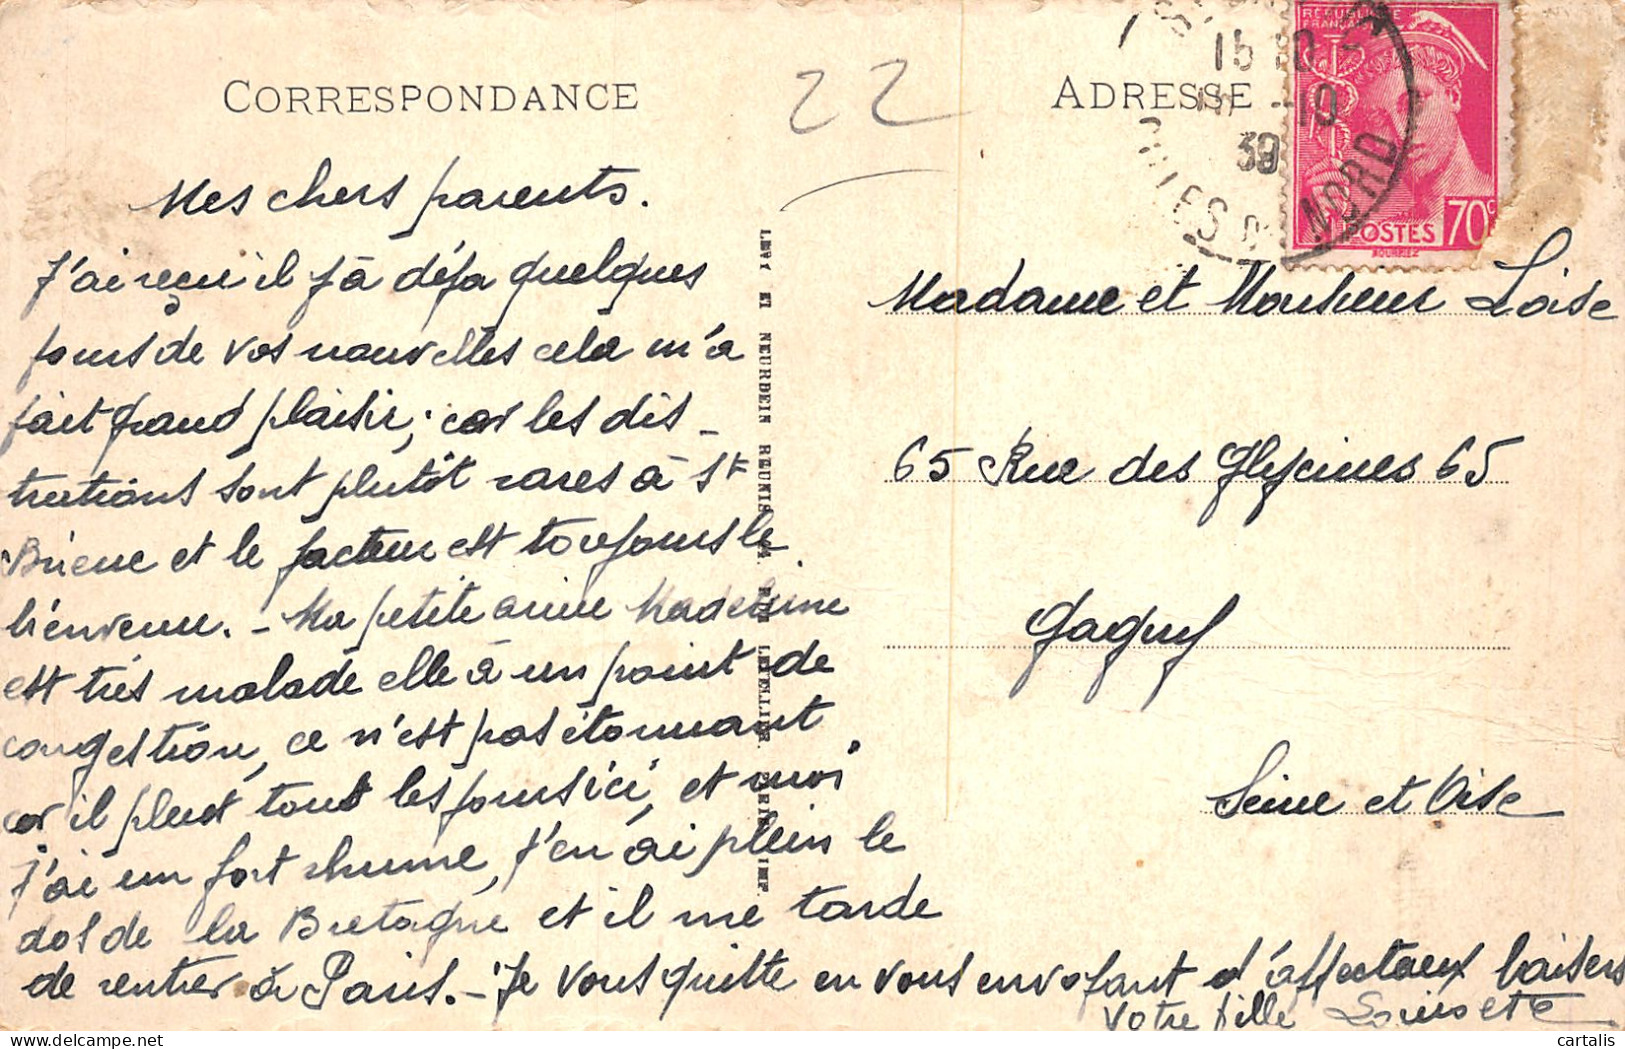 CORRESPONDANCE
22
Mes chers parents.
J'ai reçu il j à déja quelques
jours de vos nouvelles cela m'a
fait grand plaisir, car les dis-
tractions sont plutôt rares à St
Brieuc et le facteur est toujours le
bienvenu. - Ma petite amie Madeleine
est très malade elle à un point de
congestion, ce n'est pas étonnant
car il pleut tout les jours ici, et moi
j'ai un fort rhume, j'en ai plein le
dos de la Bretagne et il me tarde
de rentrer à Paris. - Je vous quitte en vous envoyant d'affectueux baisers
Votre fille Louisette
LEVY ET NEURDEIN REUNIS
IMP.
ADRESSE
15 10
-10
39
CÔTES DU NORD
REPUBLIQUE
FRANÇAISE
POSTES 70c
Madame et Monsieur Loise
65 Rue des Glycines 65
Gagny
Seine et Oise
delcampe.net
cartalis